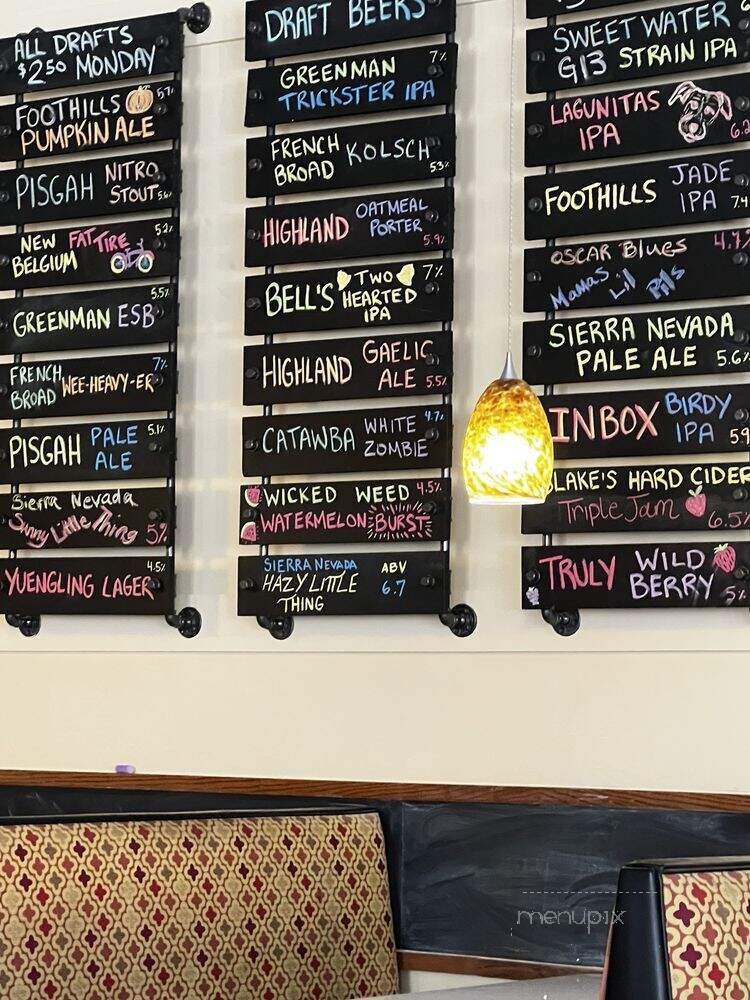 ALL DRAFTS
$2.50 MONDAY
FOOTHILLS 5.7
PUMPKIN ALE
PISGAH NITRO
STOUT
NEW FAT TIRE 5.2%
BELGIUM
GREENMAN ESB 5.5%
FRENCH 7%
BROAD WEE-HEAVY-ER
PISGAH PALE 5.1%
ALE
Sierra Nevada
Sunny Little Thing 5%
YUENGLING LAGER 4.5%
DRAFT BEERS
GREENMAN 7%
TRICKSTER IPA
FRENCH
BROAD KOLSCH 5.3%
HIGHLAND OATMEAL
PORTER 5.9%
BELL'S TWO 7%
HEARTED
IPA
HIGHLAND GAELIC
ALE 5.5%
CATAWBA WHITE 4.7%
ZOMBIE
WICKED WEED 4.5%
WATERMELON BURST
SIERRA NEVADA ABV
HAZY LITTLE 6.7
THING
SWEET WATER
G13 STRAIN IPA
LAGUNITAS
IPA 6.2
FOOTHILLS JADE
IPA 7.4
OSCAR BLUES 4.7%
Mamas Lil Pils
SIERRA NEVADA
PALE ALE 5.6%
INBOX BIRDY
IPA 59
BLAKE'S HARD CIDER
Triple Jam 6.5%
TRULY WILD
BERRY 5%
menupix